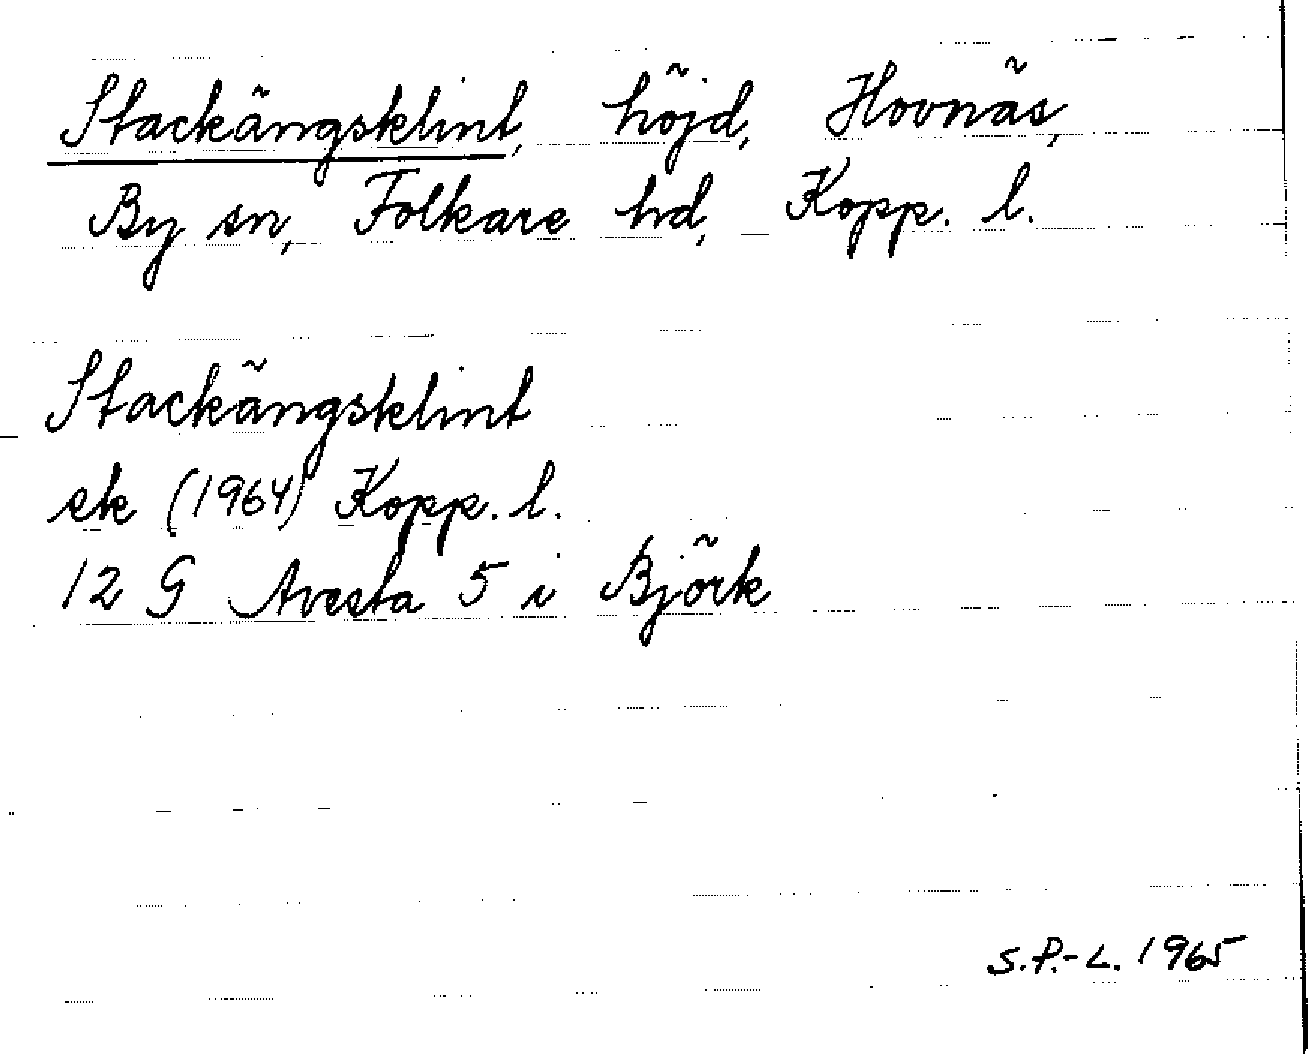 Stackängsklint, höjd, Hovnäs,
By sn, Folkare hd, Kopp. l.
Stackängsklint
ek (1964) Kopp. l.
12 G Avesta 5 i Björk
S.P.-L. 1965